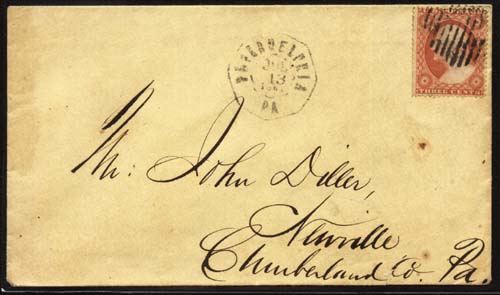 PHILADELPHIA
13
PA
THREE CENTS
Mr: John Diller,
Newville
Cumberland Co. Pa.